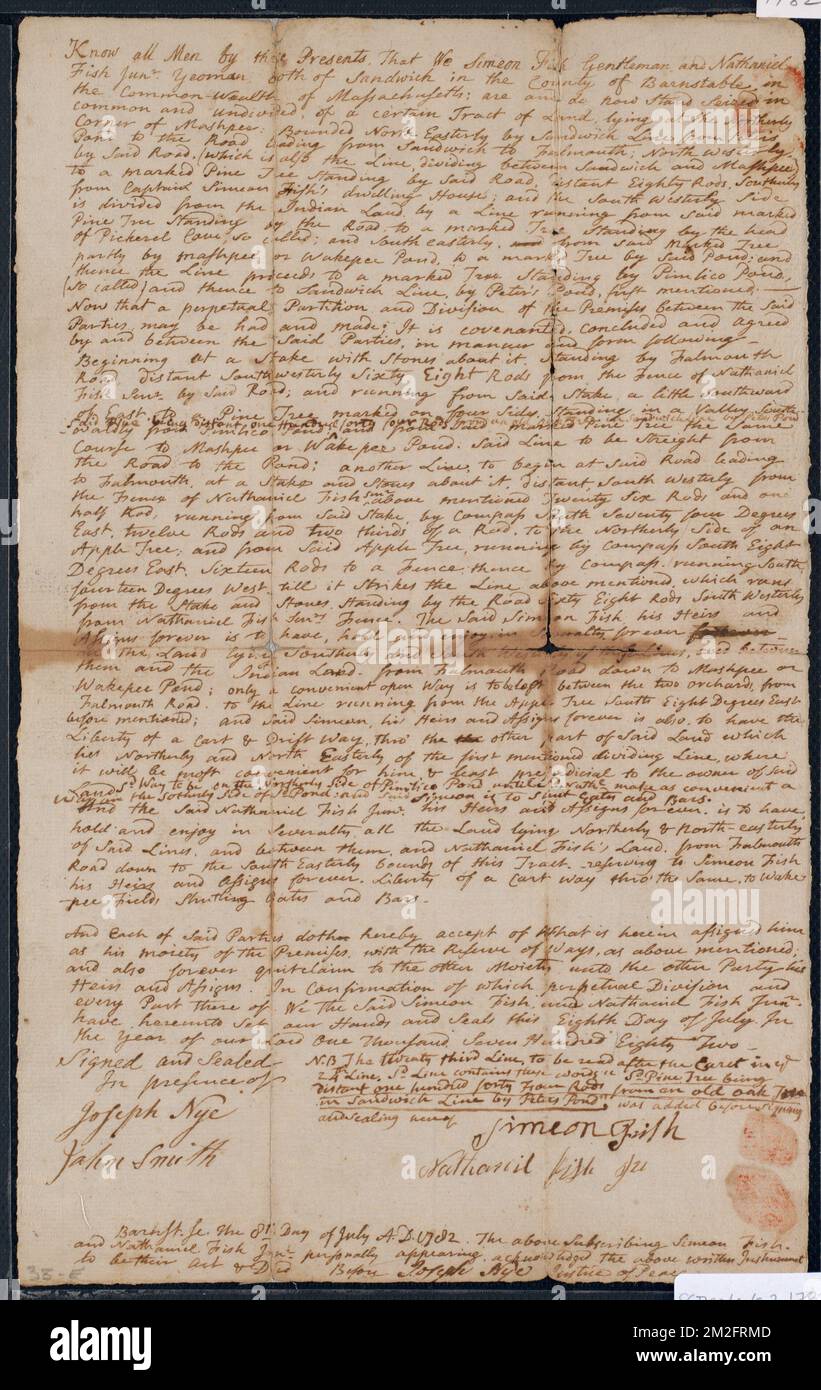 1782
Know all Men by these Presents, That We Simeon Fish Gentleman and Nathaniel
Fish Junr. Yeoman, both of Sandwich in the County of Barnstable in
the Common-Wealth of Massachusetts; are and do now Stand Seized in
common and undivided, of a certain Tract of Land, lying at the Northerly
Corner of Mashpee: Bounded North Easterly by Sandwich Line, from Peters
Pond to the Road leading from Sandwich to Falmouth; North Westerly
by Said Road, (which is also the Line, dividing between Sandwich and Mashpee)
to a marked Pine Tree Standing by Said Road, distant Eighty Rods, Southerly
from Captain Simeon Fish's dwelling House; and the South Westerly Side
is divided from the Indian Land, by a Line running from Said marked
Pine Tree Standing by the Road to a marked Tree Standing by the head
of Pickerel Cove, so called; and South easterly, from Said Marked Tree
partly by mashpee or Wakepee Pond, to a marked Tree by Said Pond; and
thence the Line proceeds to a marked Tree Standing by Pimlico Pond,
(so called) and thence to Sandwich Line, by Peter's Pond, first mentioned.
Now that a perpetual Partition and Division of the Premises between the Said
Parties may be had and made; It is covenanted, concluded and agreed
by and between the Said Parties, in manner and form following—
Beginning at a Stake with Stones about it, Standing by Falmouth
Road distant Southwesterly Sixty Eight Rods from the Fence of Nathaniel
Fish Senr. by Said Road; and running from Said Stake, a little Southward
of East, to a Pine Tree marked on four Sides, Standing in a Valley South-
Said Pine Tree being distant one Hundred forty four Rods from an old Oak Tree in Sandwich Line by Peters Pond
wardly from Pimlico Pond, ^ and from Said marked Pine Tree the Same
Course to Mashpee or Wakepee Pond. Said Line to be Streight from
the Road to the Pond; another Line, to begin at Said Road leading
to Falmouth, at a Stake and Stones about it, distant South Westerly from
the Fence of Nathaniel Fish Senr. above mentioned Twenty Six Rods and one
half Rod, running from Said Stake, by Compass South Seventy four Degrees
East, twelve Rods and two thirds of a Rod, to the Northerly Side of an
Apple Tree; and from Said Apple Tree, running by Compass South Eight
Degrees East, Sixteen Rods to a Fence; thence by Compass, running South,
fourteen Degrees West, till it Strikes the Line above mentioned, which runs
from the Stake and Stones, Standing by the Road Sixty Eight Rods South Westerly
from Nathaniel Fish Senrs. Fence. The Said Simeon Fish his Heirs and
Assigns forever is to have, hold and enjoy in Severalty, forever
the Land lying Southerly and South Westerly of Said Lines, and between
them and the Indian Land, from Falmouth Road down to Mashpee or
Wakepee Pond; only a convenient open Way is to be left between the two orchards, from
Falmouth Road, to the Line running from the Apple Tree South Eight Degrees East
before mentioned; and Said Simeon, his Heirs and Assigns forever is also to have the
Liberty of a Cart & Drift Way, thro' the other part of Said Land which
lies Northerly and North Easterly of the first mentioned dividing Line, where
it will be most convenient for him, & least prejudicial to the owner of Said
Land. Sd. Way to be on the Northerly Side of Pimlico Pond until Sd. Nathl. make as convenient a
Way on the Sotherly Side of Sd. Pond. and Said Simeon is to Shut Gates and Bars.
And the Said Nathaniel Fish Junr. his Heirs and Assigns forever, is to have
hold and enjoy in Severalty, all the Land lying Northerly & North-easterly
of Said Lines, and between them, and Nathaniel Fish's Land, from Falmouth
Road down to the South Easterly bounds of this Tract, reserving to Simeon Fish
his Heirs and Assigns forever, Liberty of a Cart way thro' the Same, to Wake-
pee Fields Shutting Gates and Bars.
And Each of Said Parties doth hereby accept of What is herein assigned him
as his moiety of the Premises, with the Reserve of Ways, as above mentioned;
and also forever quitclaim to the other Moiety unto the other Party his
Heirs and Assigns. In Confirmation of which perpetual Division and
every Part there of We the Said Simeon Fish, and Nathaniel Fish Junr.
have hereunto Set our Hands and Seals this Eighth Day of July In
the Year of our Lord One Thousand Seven Hundred Eighty Two—
Signed and Sealed
In presence of
Joseph Nye
John Smith
N.B The twenty third Line, to be read after the Caret in ye
24th Line, Sd. Line contains these words Sd. Pine Tree being
distant one hundred forty Four Rods from an old oak Tree
in Sandwich Line by Peters Pond, was added before Signing
and sealing hereof
Simeon Fish
Nathaniel Fish Jur
Barnst. Ss. The 8th. Day of July A.D. 1782. The above Subscribing Simeon Fish
and Nathaniel Fish Junr. personally appearing, acknowledged the above written Instrument
to be their Act & Deed Before Joseph Nye Justice of Peace
33-E
alamy
Image ID: 2M2FRMD
www.alamy.com